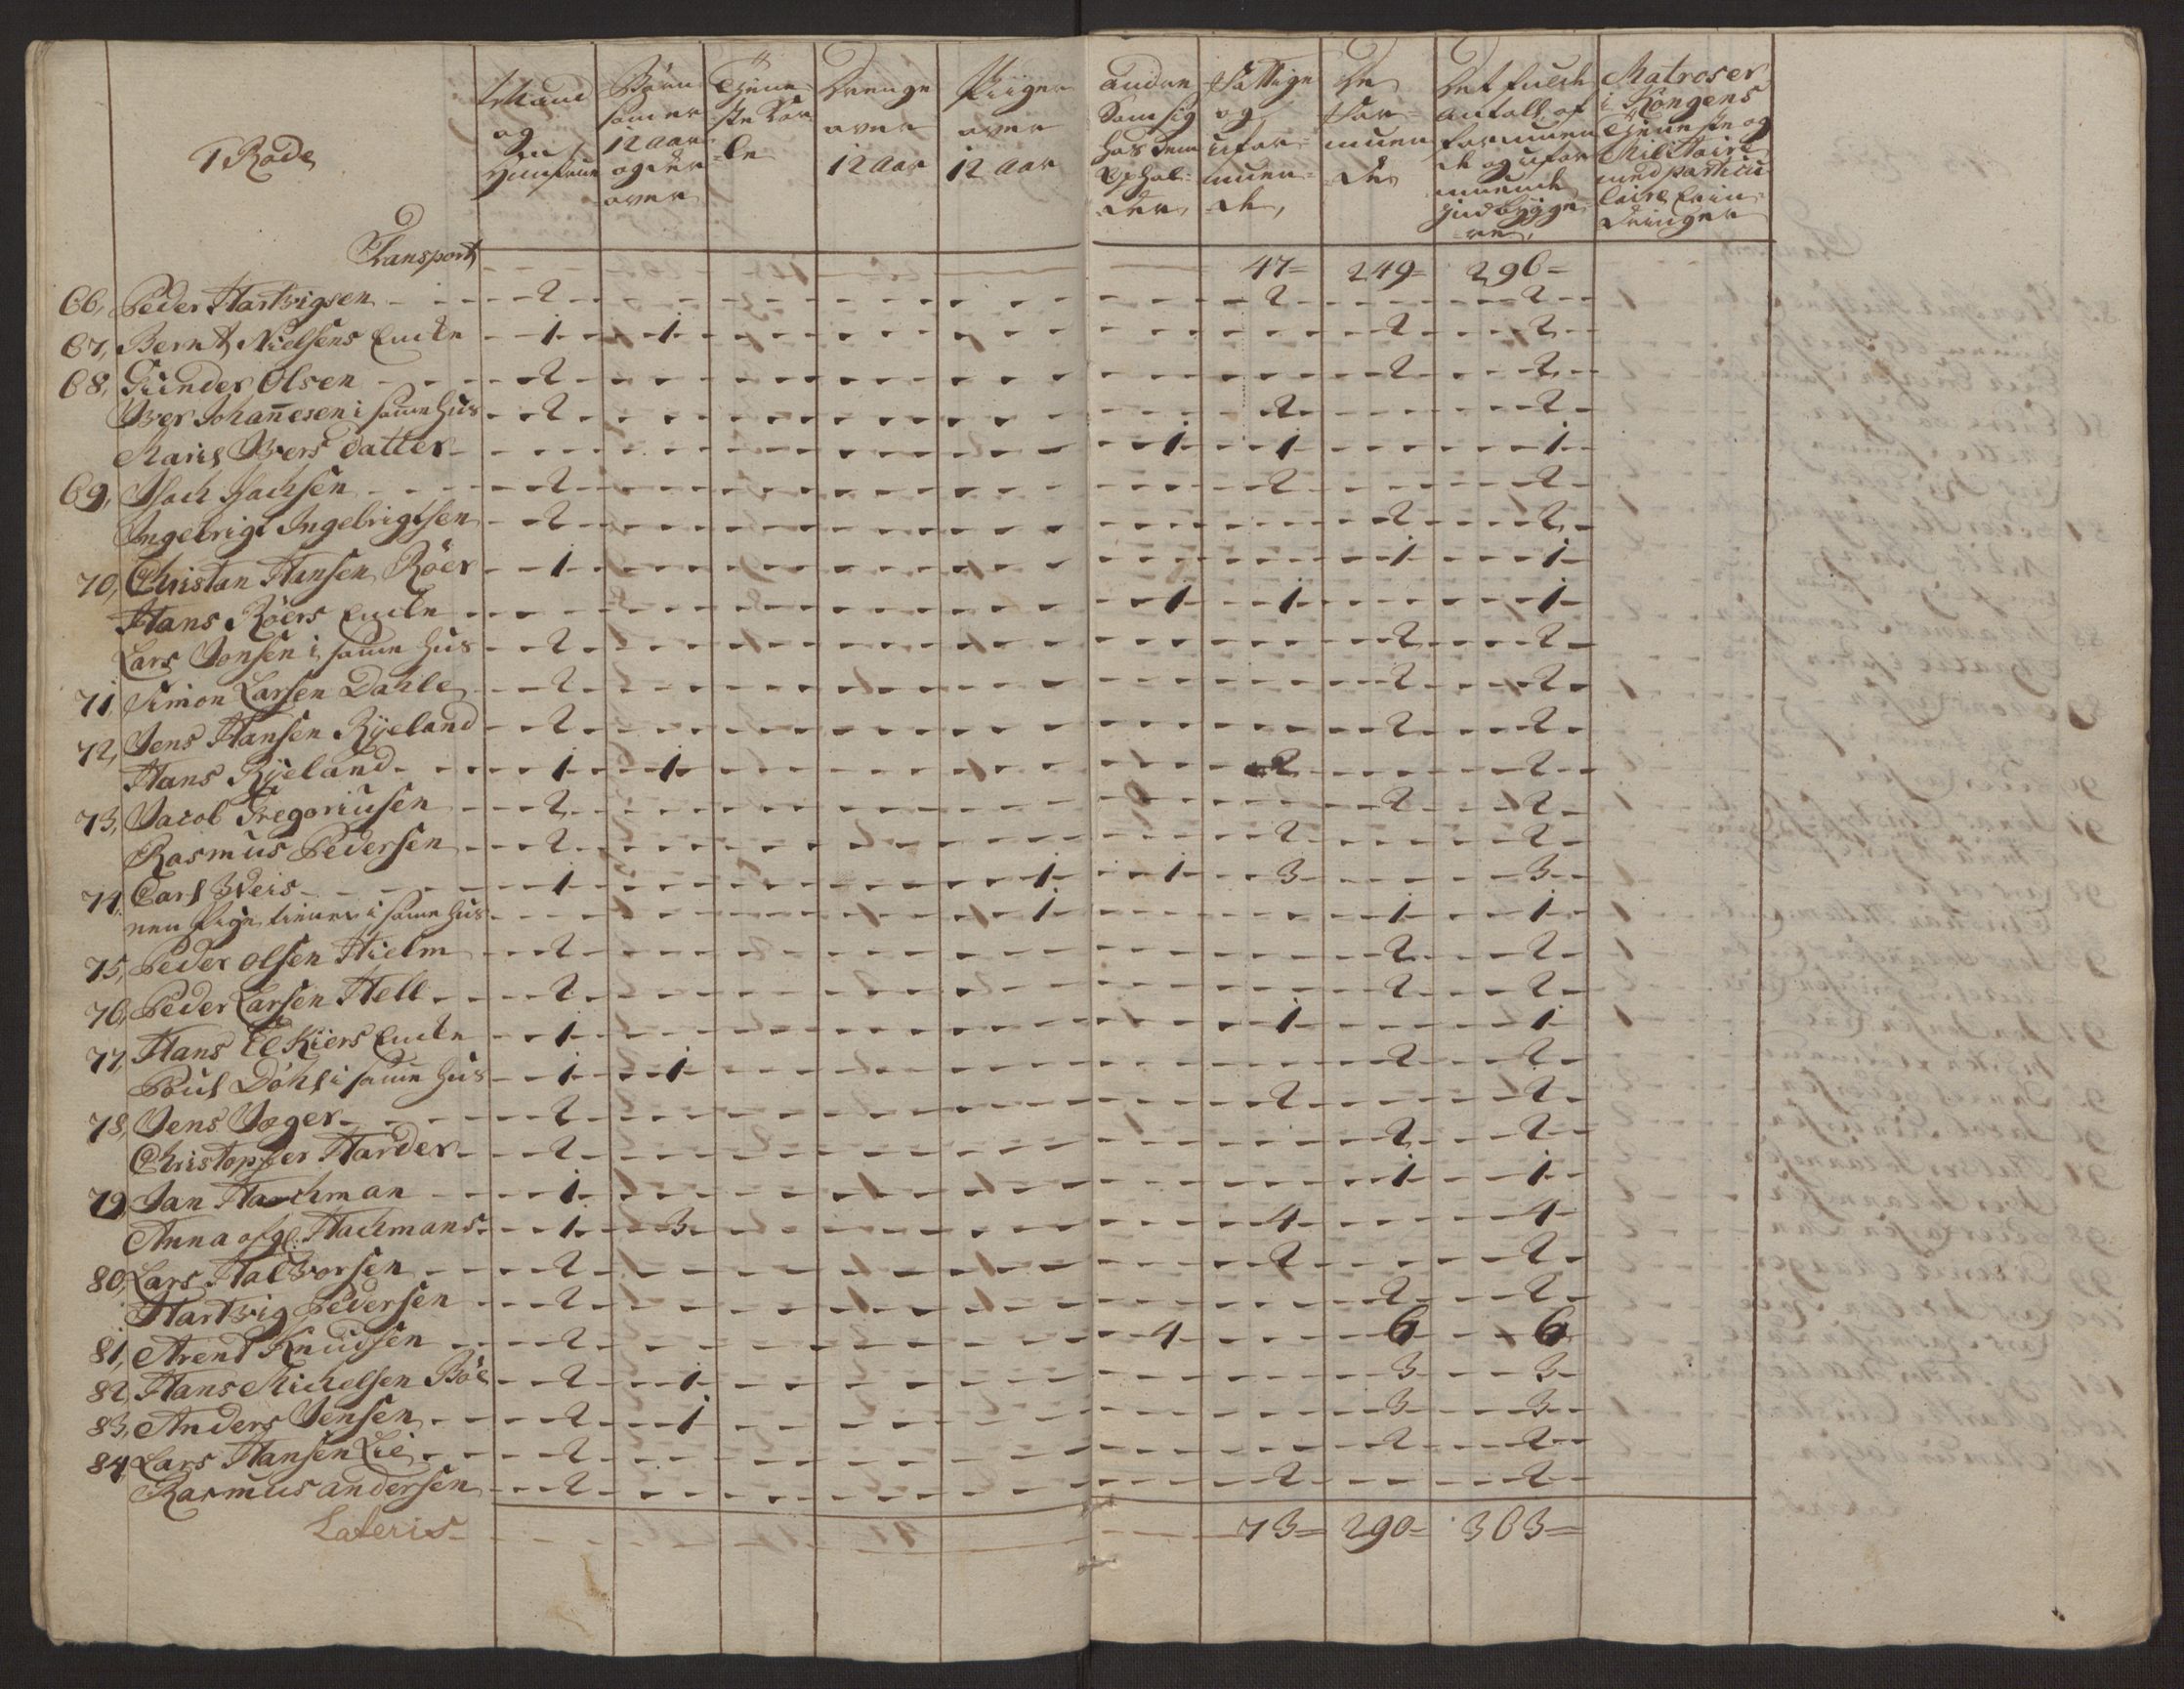 1 Rode
Mand og Hustrue
Børn som er 12 aar og der over
Tieneste Karle
Drenge over 12 aar
Piiger over 12 aar
andre Som sig hos dem Ophol- der
Fattige og ufor- muen- de,
De For- muen de
Det fulde antall af formuen de og ufor muende Jndbygge- re,
Matroser i Kongens Tieneste og Militaire med particu laire Erin- dringer
Transport 47= 249= 296=
66, Peder Hartvigsen 2 2 2
67, Bernt Nielsens Encke 1 1 2 2
68, Gunder Olsen 2 2 2
Iver Johan̄esen i samme Hus 2 2 2
Maris Ivers datter 1 1 1
69, Isach Isachsen 2 2 2
Ingebrigt Ingebrigtsen 2 2 2
70, Christan Hansen Röer 1 1 1
Hans Röers Encke 1 1 1
Lars Jonsen i samme Hus 2 2 2
71, Simon Larsen Dahle 2 2 2
72, Jens Hansen Ryeland 2 2 2
Hans Ryeland 1 1 2 2
73, Jacob Gregoriusen 2 2 2
Rasmus Pedersen 2 2 2
74, Carl Weis 1 1 1 3 3
nen Pige tiener i samme Hus 1 1 1
75, Peder Olsen Hielm 2 2 2
76, Peder Larsen Hell 2 2 2
77, Hans El Kiers Encke 1 1 1
Poul Döhl i samme Hus 1 1 2 2
78, Jens Jæger 2 2 2
Christopfer Harder 2 2 2
79, Jan Hachman 1 1 1
Anna afgl: Hachmans 1 3 4 4
80, Lars Halvorsen 2 2 2
Hartvig Pedersen 2 2 2
81, Arent Knudsen 2 4 6 6
82, Hans Michelsen Böe 2 1 3 3
83, Anders Jensen 2 1 3 3
84 Lars Hansen Lie 2 2 2
Rasmus andersen 2 2 2
Lateris 73= 290= 363=